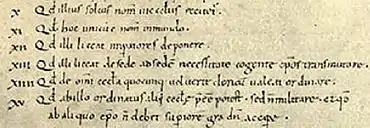 X Qd illius solius nom in ecclesiis recitet.
XI Qd hoc unicu nom in mundo.
XII Qd illi liceat impatores deponere.
XIII Qd illi liceat de sede ad sedem necessitate cogente epos transmutare.
XIIII Qd de omi eccla quocunq uoluerit clericu ualeat ordinare.
XV Qd ab illo ordinatus alii eccle pee potest. sed n militare. et qd
ab aliquo epo n debet supiore gradu accipe.